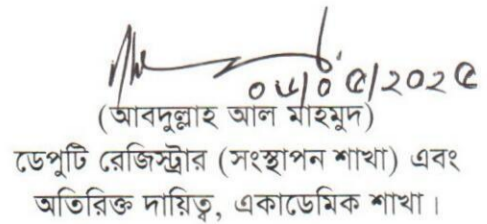 ০৮/০৫/২০২৫
(আবদুল্লাহ আল মাহমুদ)
ডেপুটি রেজিস্ট্রার (সংস্থাপন শাখা) এবং
অতিরিক্ত দায়িত্ব, একাডেমিক শাখা।